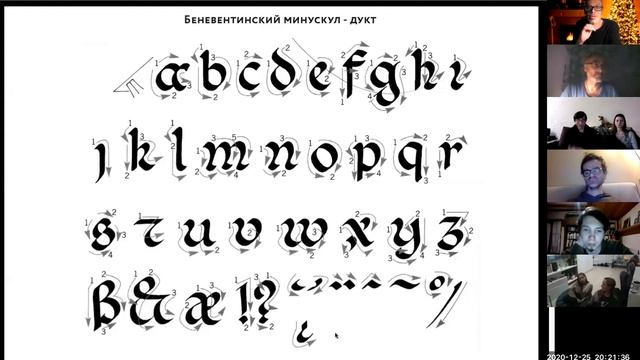 Беневентинский минускул - дукт
a b c d e f g h ı
ȷ k l m n o p q r
s τ u v w x y z
ß & æ ! ?
2020-12-25 20:21:36